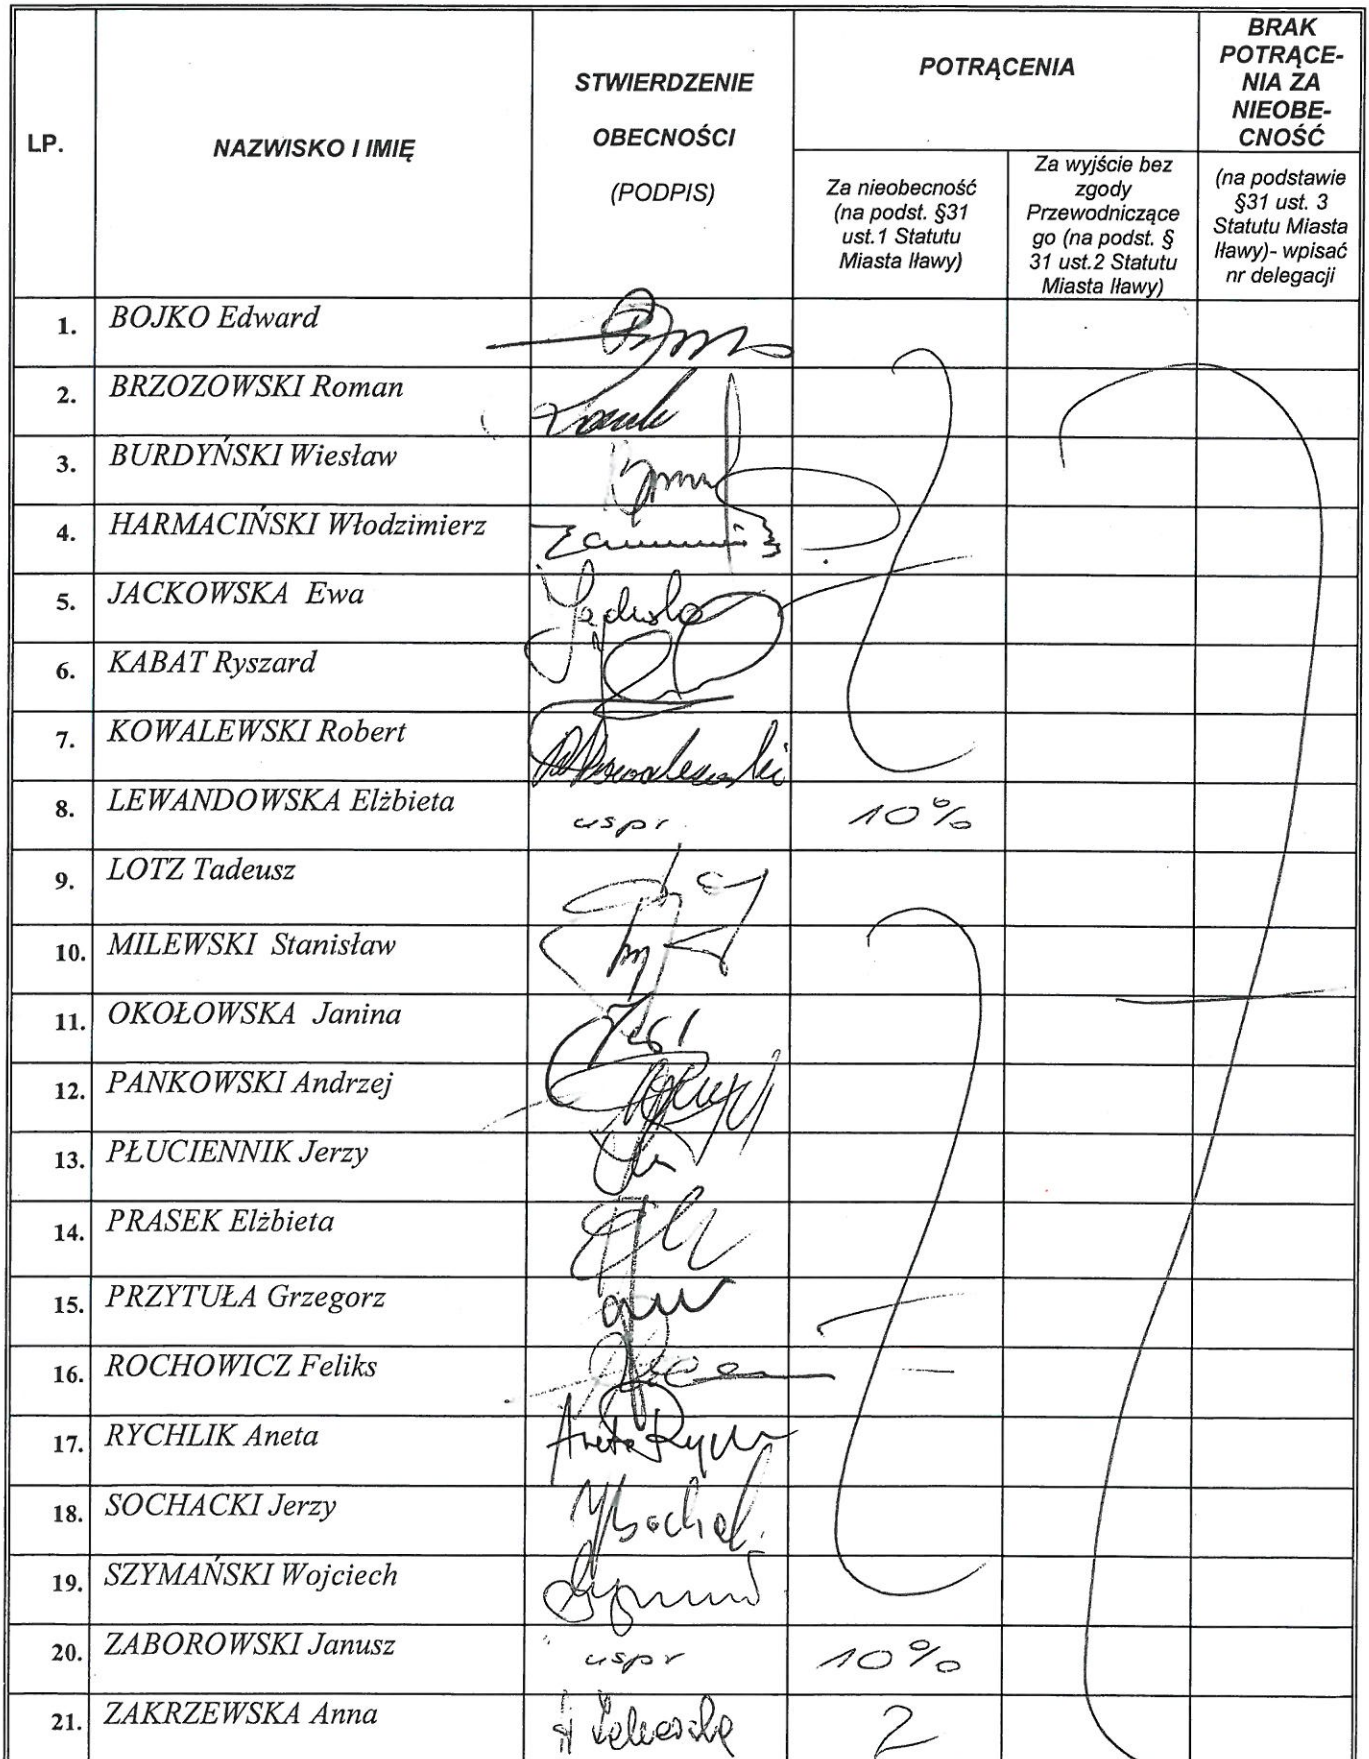 LP.
NAZWISKO I IMIĘ
STWIERDZENIE
OBECNOŚCI
(PODPIS)
POTRĄCENIA
BRAK
POTRĄCE-
NIA ZA
NIEOBE-
CNOŚĆ
Za nieobecność
(na podst. §31
ust.1 Statutu
Miasta Iławy)
Za wyjście bez
zgody
Przewodniczące
go (na podst. §
31 ust.2 Statutu
Miasta Iławy)
(na podstawie
§31 ust. 3
Statutu Miasta
Iławy)- wpisać
nr delegacji
1. BOJKO Edward
2. BRZOZOWSKI Roman
3. BURDYŃSKI Wiesław
4. HARMACIŃSKI Włodzimierz
5. JACKOWSKA Ewa
6. KABAT Ryszard
7. KOWALEWSKI Robert
8. LEWANDOWSKA Elżbieta uspr. 10%
9. LOTZ Tadeusz
10. MILEWSKI Stanisław
11. OKOŁOWSKA Janina
12. PANKOWSKI Andrzej
13. PŁUCIENNIK Jerzy
14. PRASEK Elżbieta
15. PRZYTUŁA Grzegorz
16. ROCHOWICZ Feliks
17. RYCHLIK Aneta
18. SOCHACKI Jerzy
19. SZYMAŃSKI Wojciech
20. ZABOROWSKI Janusz uspr 10%
21. ZAKRZEWSKA Anna